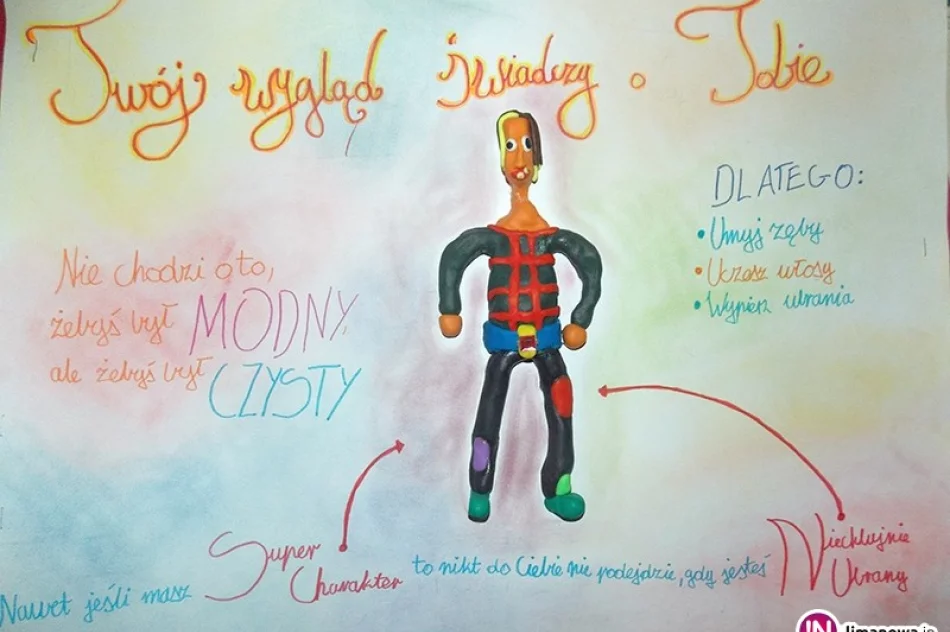 Twój wygląd świadczy o Tobie
Nie chodzi o to,
żebyś był MODNY,
ale żebyś był CZYSTY
DLATEGO:
• Umyj zęby
• Uczesz włosy
• Wypierz ubrania
Nawet jeśli masz Super Charakter to nikt do Ciebie nie podejdzie, gdy jesteś Niechlujnie Ubrany
IN limanowa.in